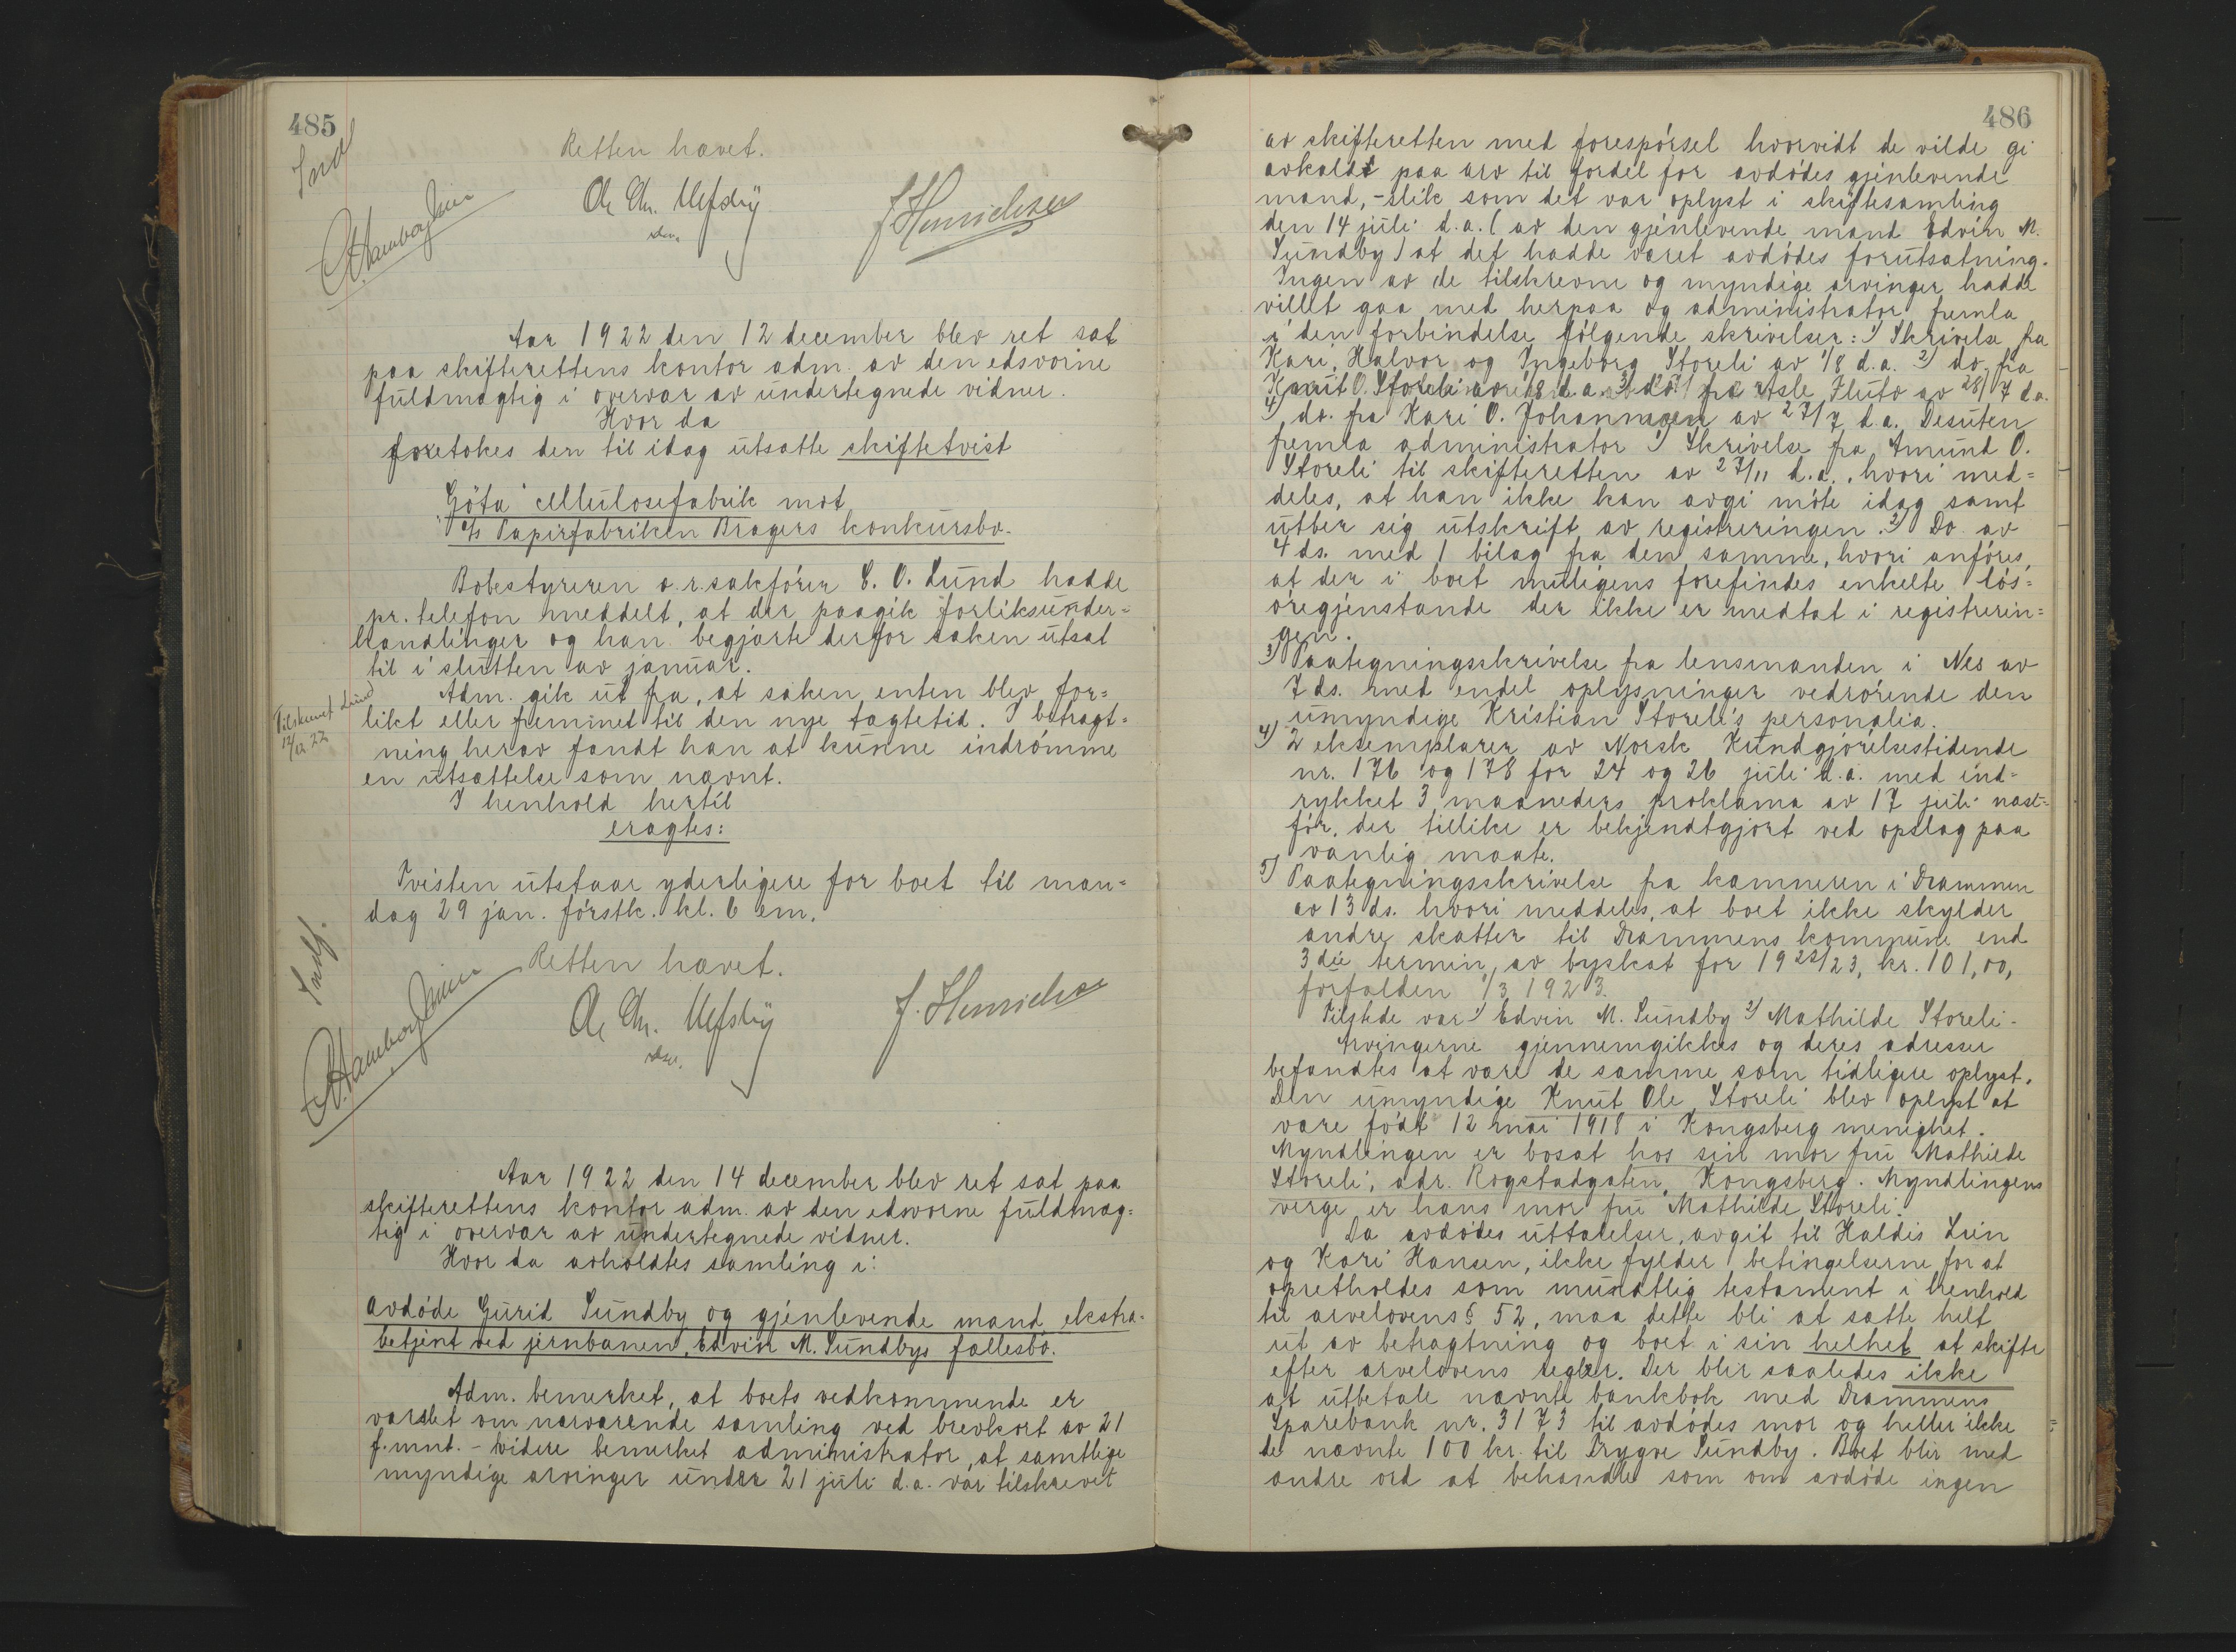 485
Retten hævet.
J. Henrichsen
Aar 1922 den 12 december blev ret sat
paa skifterettens kontor adm. av den edsvorne
fuldmægtig i overvær av undertegnede vidner.
Hvor da
foretokes den til idag utsatte skiftetvist
Göta cellulosefabrik mot
A/s Papirfabriken Bragers konkursbo.
Bobestyreren o.r.sakfører C. O. Lund hadde
pr. telefon meddelt, at der paagik forliksunder=
handlinger og han begjærte derfor saken utsat
til i slutten av januar.
Tilskrevet Lund
12/12 22
Adm. gik ut fra, at saken enten blev for=
likt eller fremmet til den nye tægtetid. I betragt=
ning herav fandt han at kunne indrømme
en utsættelse som nævnt.
I henhold hertil
eragtes:
Tvisten utstaar yderligere for boet til man=
dag 29 jan. førstk. kl. 6 em.
Retten hævet.
J. Henrichsen
Aar 1922 den 14 december blev ret sat paa
skifterettens kontor adm. av den edsvorne fuldmæg=
tig i overvær av undertegnede vidner.
Hvor da avholdtes samling i:
avdøde Gurid Sundby og gjenlevende mand ekstra=
betjent ved jernbanen, Edvin M. Sundbys fællesbo.
Adm. bemerket, at boets vedkommende er
varslet om nærværende samling ved brevkort av 21
f. mnt. - Videre bemerket administrator, at samtlige
myndige arvinger under 21 juli d.a. var tilskrevet
486
av skifteretten med forespørsel hvorvidt de vilde gi
avkald paa arv til fordel for avdødes gjenlevende
mand, - slik som det var oplyst i skiftesamling
den 14 juli d.a. (av den gjenlevende mand Edvin M.
Sundby) at det hadde været avdødes forutsætning.
Ingen av de tilskrevne og myndige arvinger hadde
villet gaa med herpaa og administrator fremla
i den forbindelse følgende skrivelser: 1) Skrivelse fra
Kari, Halvor og Ingeborg Storeli av 1/8 d.a. 2) do. fra
Knut O. Storeli av 1/8 d.a. 3) do. fra Atle Fluto av 28/7 d.a.
4) do. fra Kari O. Johannesen av 27/7 d.a. Desuten
fremla administrator 1) Skrivelse fra Amund O.
Storeli til skifteretten av 27/11 d.a., hvori med=
deles, at han ikke kan avgi møte idag samt
utber sig utskrift av registreringen. 2) Do. av
4 ds. med 1 bilag fra den samme, hvori anføres,
at der i boet muligens forefindes enkelte løs=
øregjenstande der ikke er medtat i registrerin=
gen.
3) Paategningsskrivelse fra lensmanden i Nes av
7 ds. med endel oplysninger vedrørende den
umyndige Kristian Storeli's personalia.
4) 2 eksemplarer av Norsk Kundgjørelsestidende
nr. 176 og 178 for 24 og 26 juli d.a. med ind=
rykket 3 maaneders proklama av 17 juli næst=
før, der tillike er bekjendtgjort ved opslag paa
vanlig maate.
5) Paategningsskrivelse fra kæmneren i Drammen
av 13 ds. hvori meddeles, at boet ikke skylder
andre skatter til Drammens kommune end
3die termin av byskat for 1922/23, kr. 101,00,
forfalden 1/3 1923.
Tilstede var 1) Edvin M. Sundby 2) Mathilde Storeli.
Arvingerne gjennemgikkes og deres adresser
befandtes at være de samme som tidligere oplyst.
Den umyndige Knut Ole Storeli blev oplyst at
være født 12 mai 1918 i Kongsberg menighet.
Myndlingen er bosat hos sin mor fru Mathilde
Storeli, adr. Rogstadgaten, Kongsberg. Myndlingens
verge er hans mor fru Mathilde Storeli.
Da avdødes uttalelser, avgit til Haldis Lien
og Kari Hansen, ikke fylder betingelserne for at
opretholdes som mundtlig testament i henhold
til arvelovens § 52, maa dette bli at sætte helt
ut av betragtning og boet i sin helhet at skifte
efter arvelovens regler. Der blir saaledes ikke
at utbetale nævnte bankbok med Drammens
Sparebank nr. 3173 til avdødes mor og heller ikke
de nævnte 100 kr. til Trygve Sundby. Boet blir med
andre ord at behandle som om avdøde ingen